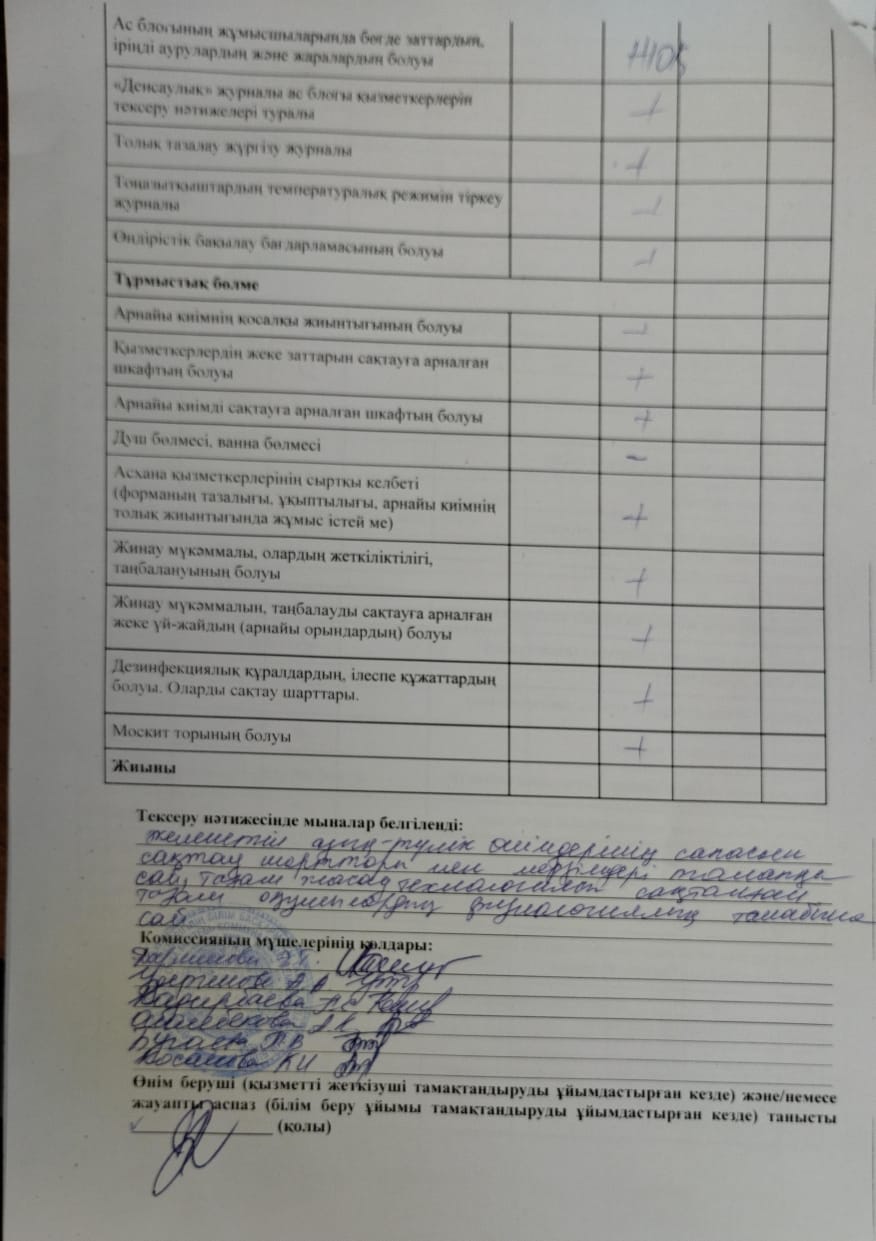 Ас блогының жұмысшыларында бөгде заттардың,
іріңді аурулардың және жаралардың болуы
жоқ
«Денсаулық» журналы ас блогы қызметкерлерін
тексеру нәтижелері туралы
+
Толық тазалау жүргізу журналы
+
Тоңазытқыштардың температуралық режимін тіркеу
журналы
+
Өндірістік бақылау бағдарламасының болуы
+
Тұрмыстық бөлме
Арнайы киімнің қосалқы жиынтығының болуы
+
Қызметкерлердің жеке заттарын сақтауға арналған
шкафтың болуы
+
Арнайы киімді сақтауға арналған шкафтың болуы
+
Душ бөлмесі, ванна бөлмесі
-
Асхана қызметкерлерінің сыртқы келбеті
(форманың тазалығы, ұқыптылығы, арнайы киімнің
толық жиынтығында жұмыс істей ме)
+
Жинау мүкәммалы, олардың жеткіліктілігі,
таңбалануының болуы
+
Жинау мүкәммалын, таңбалауды сақтауға арналған
жеке үй-жайдың (арнайы орындардың) болуы
+
Дезинфекциялық құралдардың, ілеспе құжаттардың
болуы. Оларды сақтау шарттары.
+
Москит торының болуы
+
Жиыны
Тексеру нәтижесінде мыналар белгіленді:
азық-түлік өнімдерінің сапасы
сақтау шарттары мен мерзімдері талапқа
сай, тағам жасау технологиясы сақталған
тағам оқушылардың физиологиялық талабына
сай.
Комиссияның мүшелерінің қолдары:
Өнім беруші (қызметті жеткізуші тамақтандыруды ұйымдастырған кезде) және/немесе
жауапты аспаз (білім беру ұйымы тамақтандыруды ұйымдастырған кезде) танысты
(қолы)